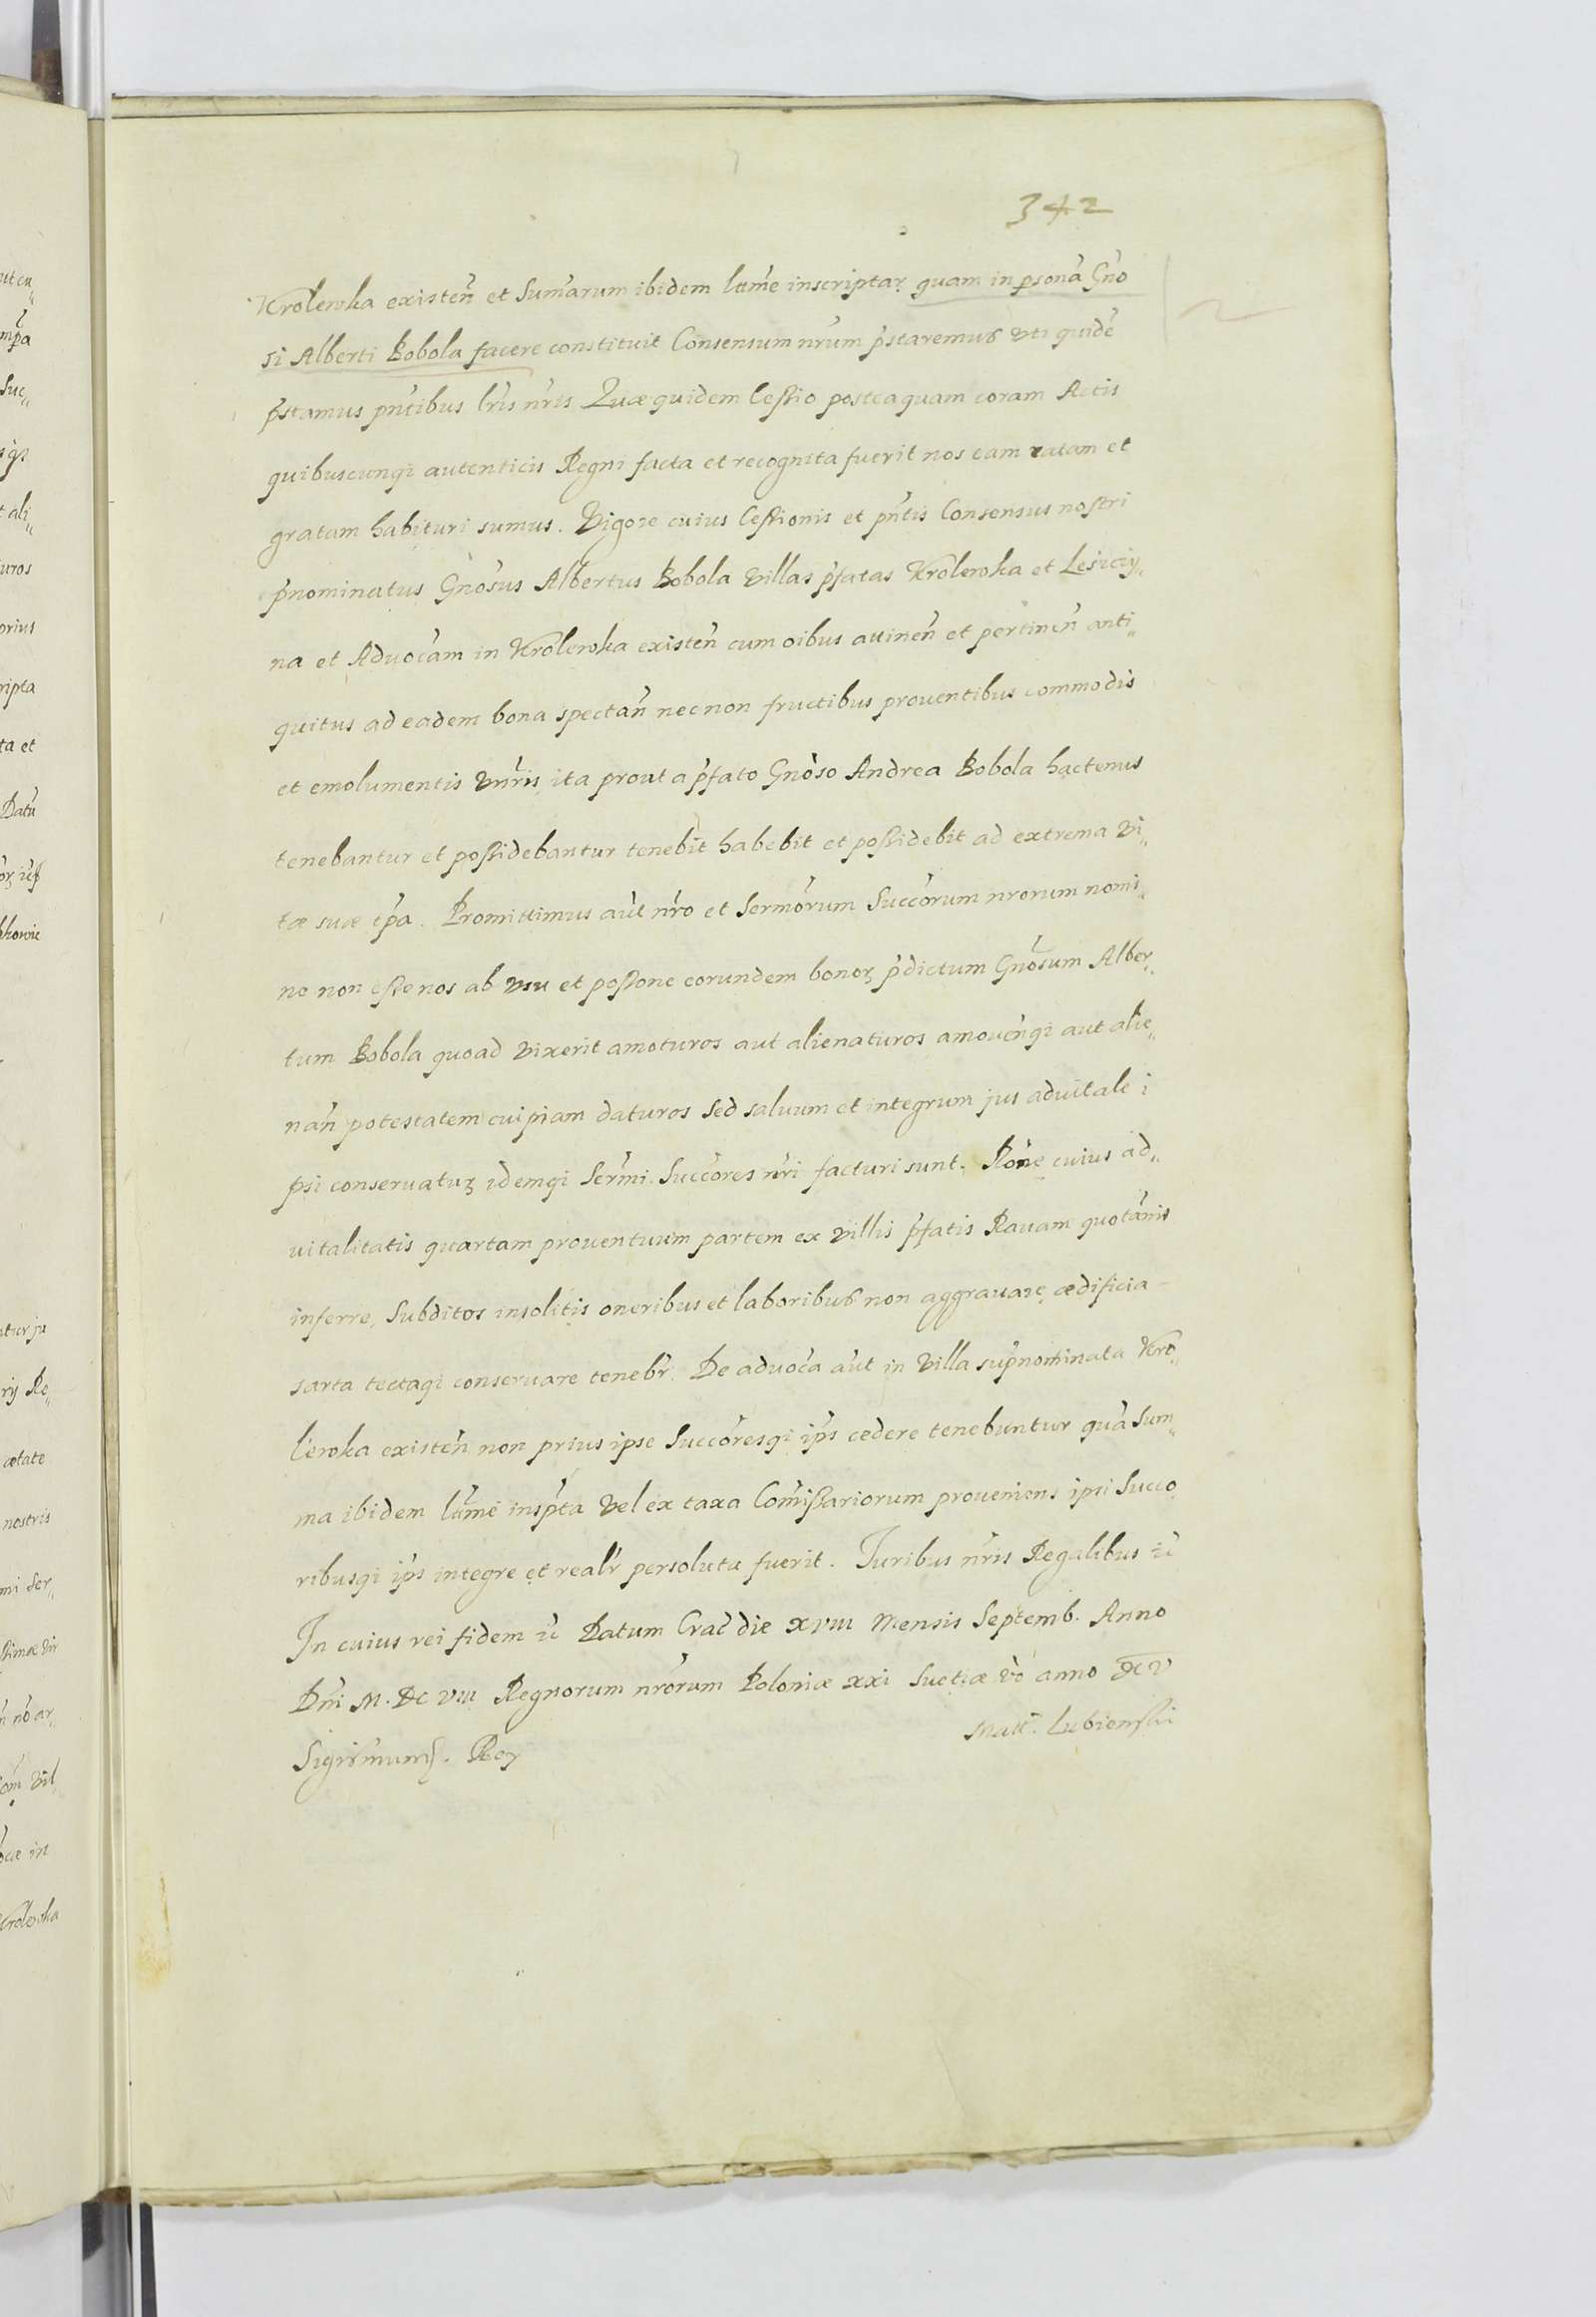 342
Krolewka existeñ et Sum̃arum ibidem lr̃ime inscriptar̨ quam in psonã Gño
si Alberti Bobola facere constituit Consensum nr̃um p̃staremus vti quidẽ
p̃stamus pñtibus lr̃is nr̃is Quæ quidem Cessio posteaquam coram Actis
quibuscunqȝ autenticis Regni facta et recognita fuerit nos eam ratam et
gratam habituri sumus. Vigore cuius Cessionis et pñtis Consensus nostri
p̃nominatus Gñosus Albertus Bobola Villas p̃fatas Krolewka et Lesiciy„
na et Advocãm in Krolewka existeñ cum oibus attineñ et pertineñ anti„
quitus ad eadem bona spectañ necnon fructibus prouentibus commodis
et emolumentis vñris ita prout a p̃fato Gñoso Andrea Bobola hactenus
tenebantur et possidebantur tenebit habebit et possidebit ad extrema vi„
tæ suæ tp̃a. Promittimus aũt nr̃o et Sermõrum Succõrum nrorum nomi„
ne non esse nos ab vsu et possone eorundem bonoȝ p̃dictum Gnõsum Alber„
tum Bobola quoad vixerit amoturos aut alienaturos amoueñqȝ aut alie„
nañ potestatem cuipiam daturos Sed saluum et integrum jus aduitale i
psi conseruatuȝ idemqȝ Serm̃i Succõres nr̃i facturi sunt. Rõne cuius ad„
uitalitatis quartam prouentuum partem ex villis p̃fatis Rauam quotãnis
inferre, Subditos insolitis oneribus et laboribus non aggrauare ædificia
sarta tectaqȝ conseruare tenebr̃. De aduocã aũt in Villa sup̃nominata Kro„
lewka existeñ non prius ipse Succõresqȝ ip̃s cedere tenebuntur quã Sum„
ma ibidem lr̃ime insp̃ta vel ex taxa Com̃issariorum proueniens ipsi Succo
ribusqȝ ip̃s integre et realr̃ persoluta fuerit. Juribus nr̃is Regalibus ꝛc̃
In cuius rei fidem ꝛc̃ Datum Crac̃ die xviii Mensis Septemb. Anno
Dñi M. DC VIII Regnorum nrõrum Poloniæ xxi Suetiæ vo anno XV
Sigismund9. Rex
Matt. Lubienski